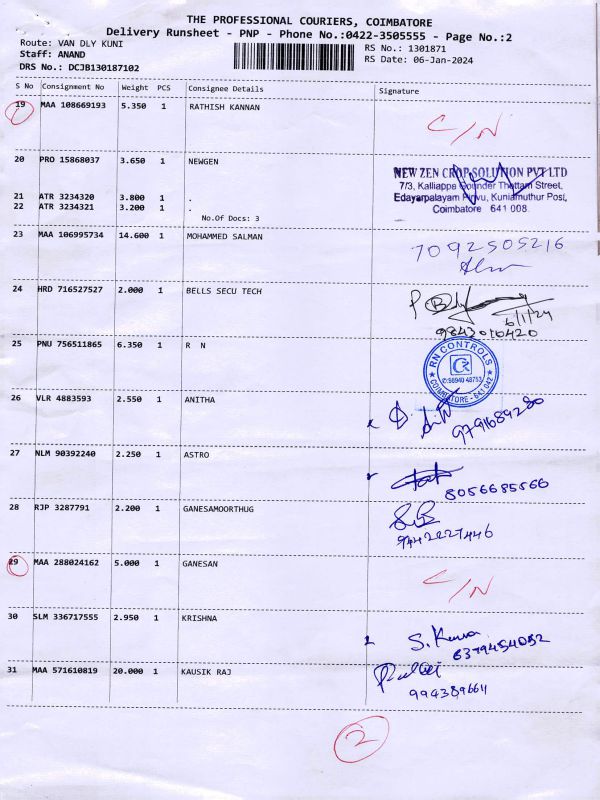 THE PROFESSIONAL COURIERS, COIMBATORE
Delivery Runsheet - PNP - Phone No.:0422-3505555 - Page No.:2
Route: VAN DLY KUNI RS No.: 1301871
Staff: ANAND RS Date: 06-Jan-2024
DRS No.: DCJB130187102
S No Consignment No Weight PCS Consignee Details Signature
19 MAA 108669193 5.350 1 RATHISH KANNAN
C/N
20 PRO 15868037 3.650 1 NEWGEN
NEW ZEN CROP SOLUTION PVT LTD
7/3, Kalliappa Gounder Thottam Street,
Edayarpalayam Pirivu, Kuniamuthur Post,
Coimbatore 641 008.
21 ATR 3234320 3.800 1 .
22 ATR 3234321 3.200 1 .
No.Of Docs: 3
23 MAA 106995734 14.600 1 MOHAMMED SALMAN
7092505216
24 HRD 716527527 2.000 1 BELLS SECU TECH
6/1/24
9843010420
25 PNU 756511865 6.350 1 R N
RN CONTROLS
COIMBATORE - 641 042
26 VLR 4883593 2.550 1 ANITHA
9791689280
27 NLM 90392240 2.250 1 ASTRO
8056685566
28 RJP 3287791 2.200 1 GANESAMOORTHUG
9442227446
29 MAA 288024162 5.000 1 GANESAN
C/N
30 SLM 336717555 2.950 1 KRISHNA
6379454032
31 MAA 571610819 20.000 1 KAUSIK RAJ
994389664
2